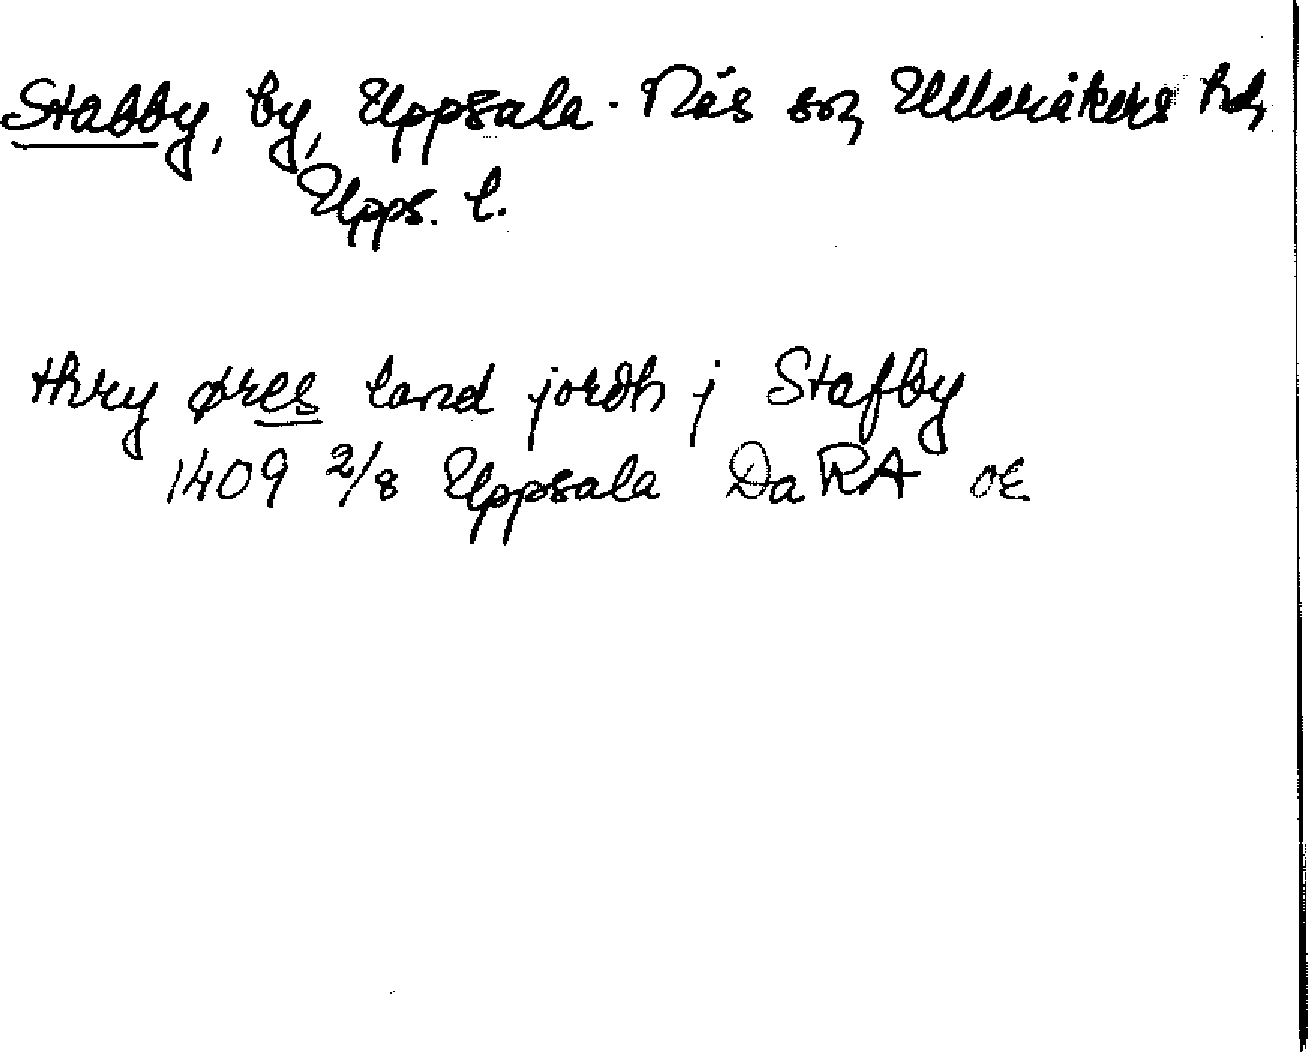 Stabby, by, Uppsala-Näs sn, Ulleråkers hd,
Upps. l.
thry øres land jordh j Stafby
1409 2/8 Uppsala DaRA or.